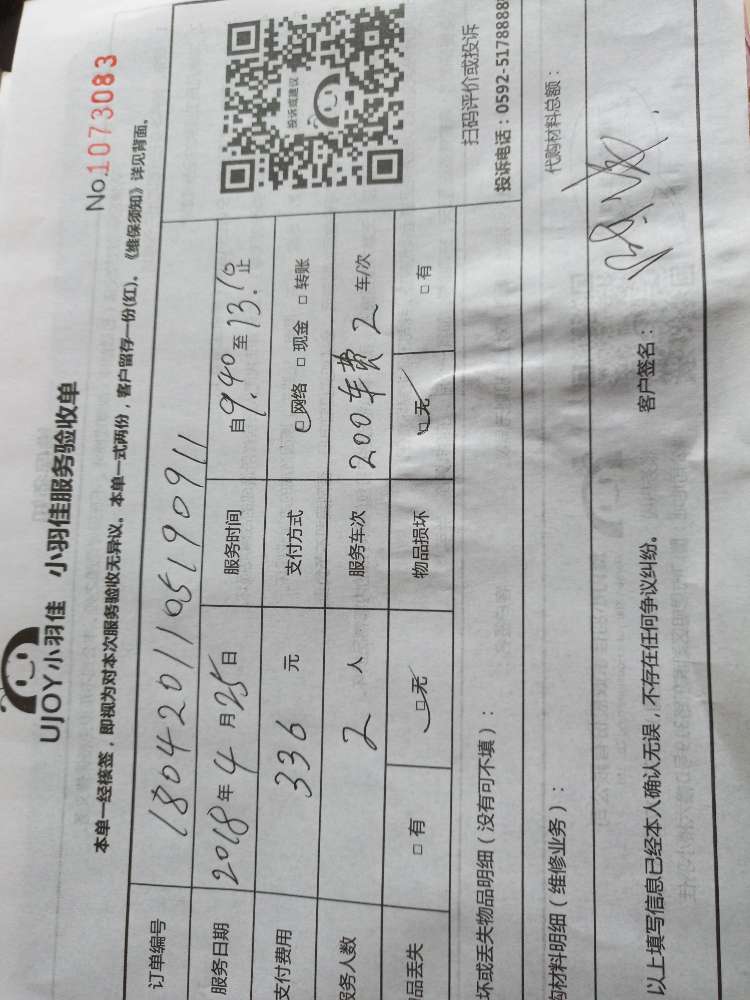 UJOY小羽佳 小羽佳服务验收单
No.1073083
本单一经核签，即视为对本次服务验收无异议。本单一式两份，客户留存一份(红)。《维保须知》详见背面。
订单编号 1804201105190911
服务日期 2018年4月25日 服务时间 自9.40至13.10止
支付费用 336元 支付方式 □网络 □现金 □转账
服务人数 2人 服务车次 200车费2车/次
品丢失 □有 □无 物品损坏 □无 □有
投诉或建议
扫码评价或投诉
投诉电话：0592-5178888
坏或丢失物品明细（没有可不填）：
购材料明细（维修业务）： 代购材料总额：
以上填写信息已经本人确认无误，不存在任何争议纠纷。 客户签名：